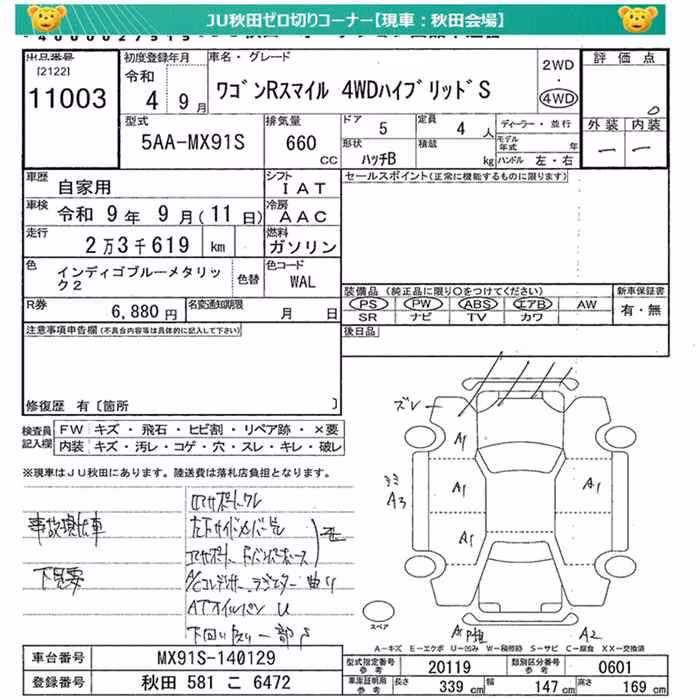 JU秋田ゼロ切りコーナー【現車：秋田会場】
出品番号
[2122]
11003
初度登録年月
令和
4 年 9 月
車名・グレード
ワゴンRスマイル 4WDハイブリッドS
2WD
・
4WD
評価点
0
外装 内装
ー ー
型式
5AA-MX91S
排気量
660
CC
ドア
5
定員
4 人
形状
ハッチB
積載
kg
ディーラー・並行
モデル年式 年
ハンドル 左・右
車歴
自家用
シフト
IAT
セールスポイント(正常に機能するものに限ります)
車検
令和 9 年 9 月 (11 日)
冷房
AAC
走行
2万3千619 km
燃料
ガソリン
色
インディゴブルーメタリック2
色替
色コード
WAL
装備品 (純正品に限り○をつけてください)
PS PW ABS エアB AW
SR ナビ TV カワ
新車保証書
有・無
R券
6,880円
名変通知期限
月 日
後日品
注意事項申告欄(不具合内容等は具体的に記入して下さい)
修復歴 有〔箇所 〕
検査員記入欄
FW キズ・飛石・ヒビ割・リペア跡・×要
内装 キズ・汚レ・コゲ・穴・スレ・キレ・破レ
※現車はJU秋田にあります。陸送費は落札店負担となります。
事故現状車
下見要
A/Cコンデンサー ラジエター 曲り
ATオイルパン U
下回り 一部 S
ズレ
A1
A3
A1
A1
A1
A2
スペア
A-キズ E-エクボ U-凹み W-補修跡 S-サビ C-腐食 XX-交換済
車台番号
MX91S-140129
登録番号
秋田 581 こ 6472
型式指定番号
20119
類別区分番号
0601
車庫証明用
長さ 339 cm
幅 147 cm
高さ 169 cm